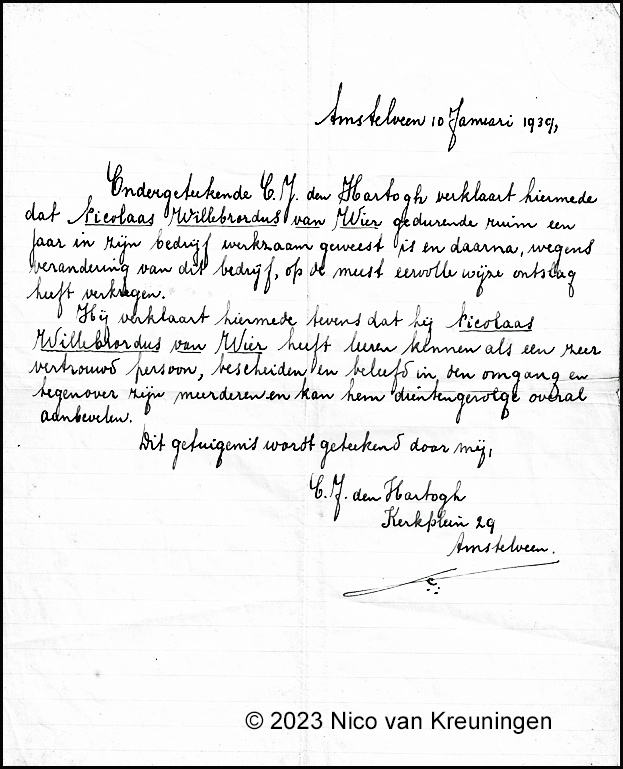 Amstelveen 10 Januari 1939,
Ondergeteekende C. J. den Hartogh verklaart hiermede
dat Nicolaas Willebrordus van Wier gedurende ruim een
jaar in zijn bedrijf werkzaam geweest is en daarna, wegens
verandering van dit bedrijf, op de meest eervolle wijze ontslag
heeft verkregen.
Hij verklaart hiermede tevens dat hij Nicolaas
Willebrordus van Wier heeft leren kennen als een zeer
vertrouwd persoon, bescheiden en beleefd in den omgang en
tegenover zijn meerderen en kan hem dientengevolge overal
aanbevelen.
Dit getuigenis wordt geteekend door mij,
C. J. den Hartogh
Kerkplein 29
Amstelveen.
© 2023 Nico van Kreuningen